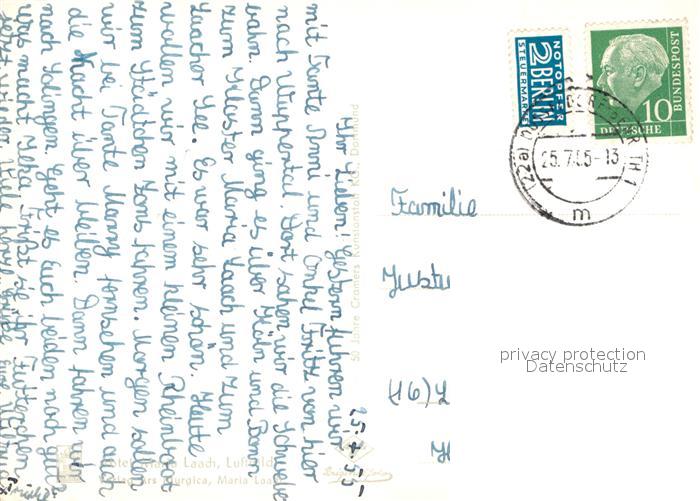 25. 7. 55.
Ihr Lieben! Gestern fuhren wir
mit Tante Anni und Onkel Fritz von hier
nach Wuppertal. Dort sahen wir die Schwebe
bahn. Dann ging es über Köln und Bonn
zum Kloster Maria Laach und zum
Laacher See. Es war sehr schön. Heute
wollen wir mit einem kleinen Rheinboot
zum Städtchen Zons fahren. Morgen sollen
wir bei Tante Manny fernsehen und auch
die Nacht über bleiben. Dann fahren wir
nach Solingen. Geht es Euch beiden noch gut
Was macht Frißt sie ihr Futterchen
jetzt wieder. Viele
Familie
Justu
(16)
50 Jahre Cramers Kunstanstalt KG., Dortmund
Maria Laach,
Verlag Ars liturgica, Maria Laach
NOTOPFER
2
BERLIN
STEUERMARKE
10
DEUTSCHE
BUNDESPOST
25.7.55-13
m
privacy protection
Datenschutz